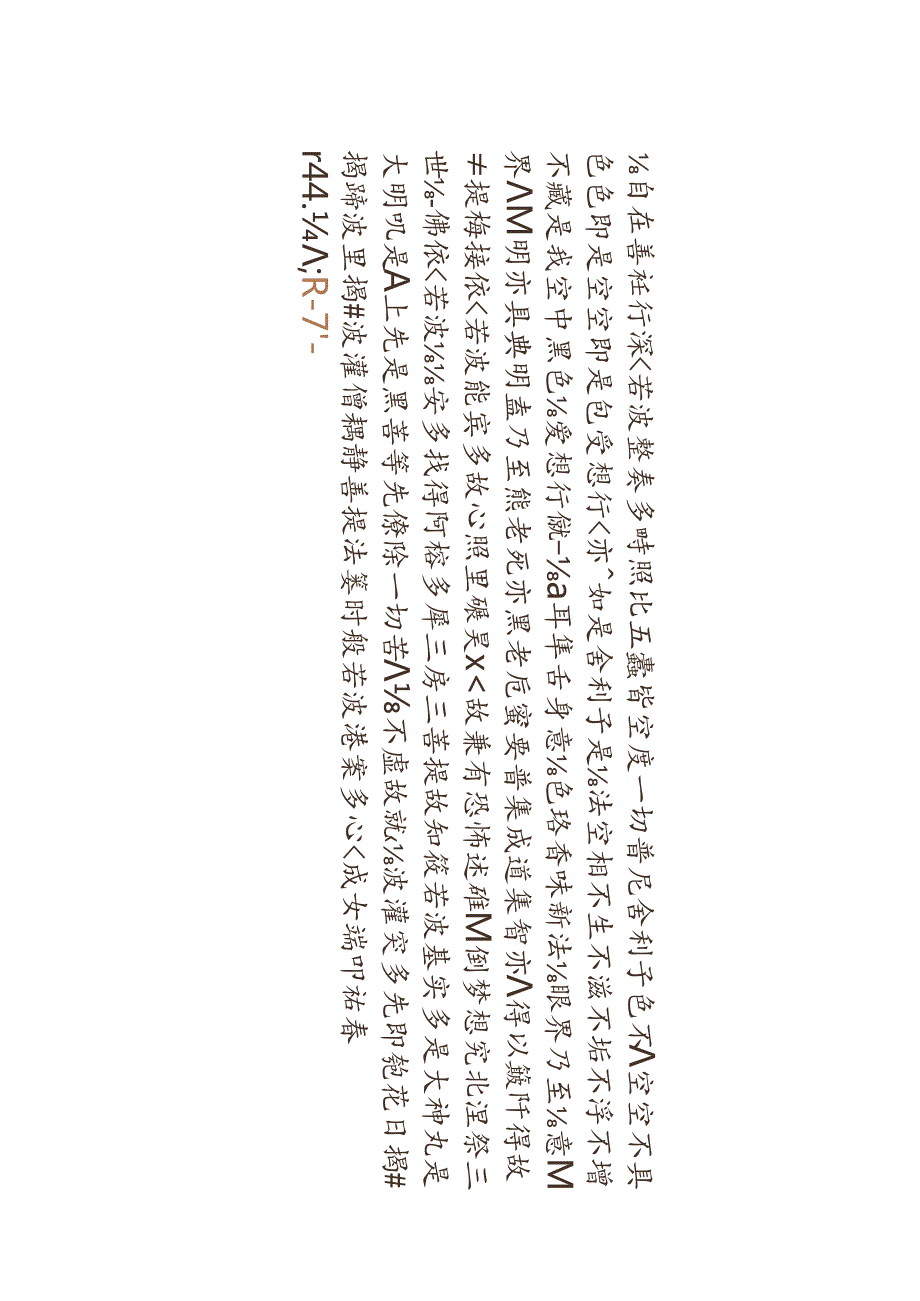 ⅛自在善衽行深<若波整奏多畤照比五蠹皆空度一切普尼舍利子色不Λ空空不具
色色即是空空即是包受想行<亦^如是舍利子是⅛法空相不生不滋不垢不浮不增
不藏是我空中黑色⅛爱想行僦-⅛a耳隼舌身意⅛色珞香味新法⅛眼界乃至⅛意M
界ΛM明亦具典明盍乃至熊老死亦黑老卮蜜要普集成道集智亦Λ得以簸阡得故
≠提梅接依<若波能宾多故心照里碾昊x<故兼有恐怖述碓M倒梦想究北涅祭三
世⅛-佛依<若波⅛⅛安多找得阿榕多犀三房三菩提故知筱若波基实多是大神丸是
大明叽是A上先是黑苦等先僚除一切苦Λ⅛不虚故就⅛波灌突多先即匏花日揭#
揭蹄波里揭#波灌僧耦静善提法篓时般若波港案多心<成女端叩祐春
r44.¼Λ;R-7'-